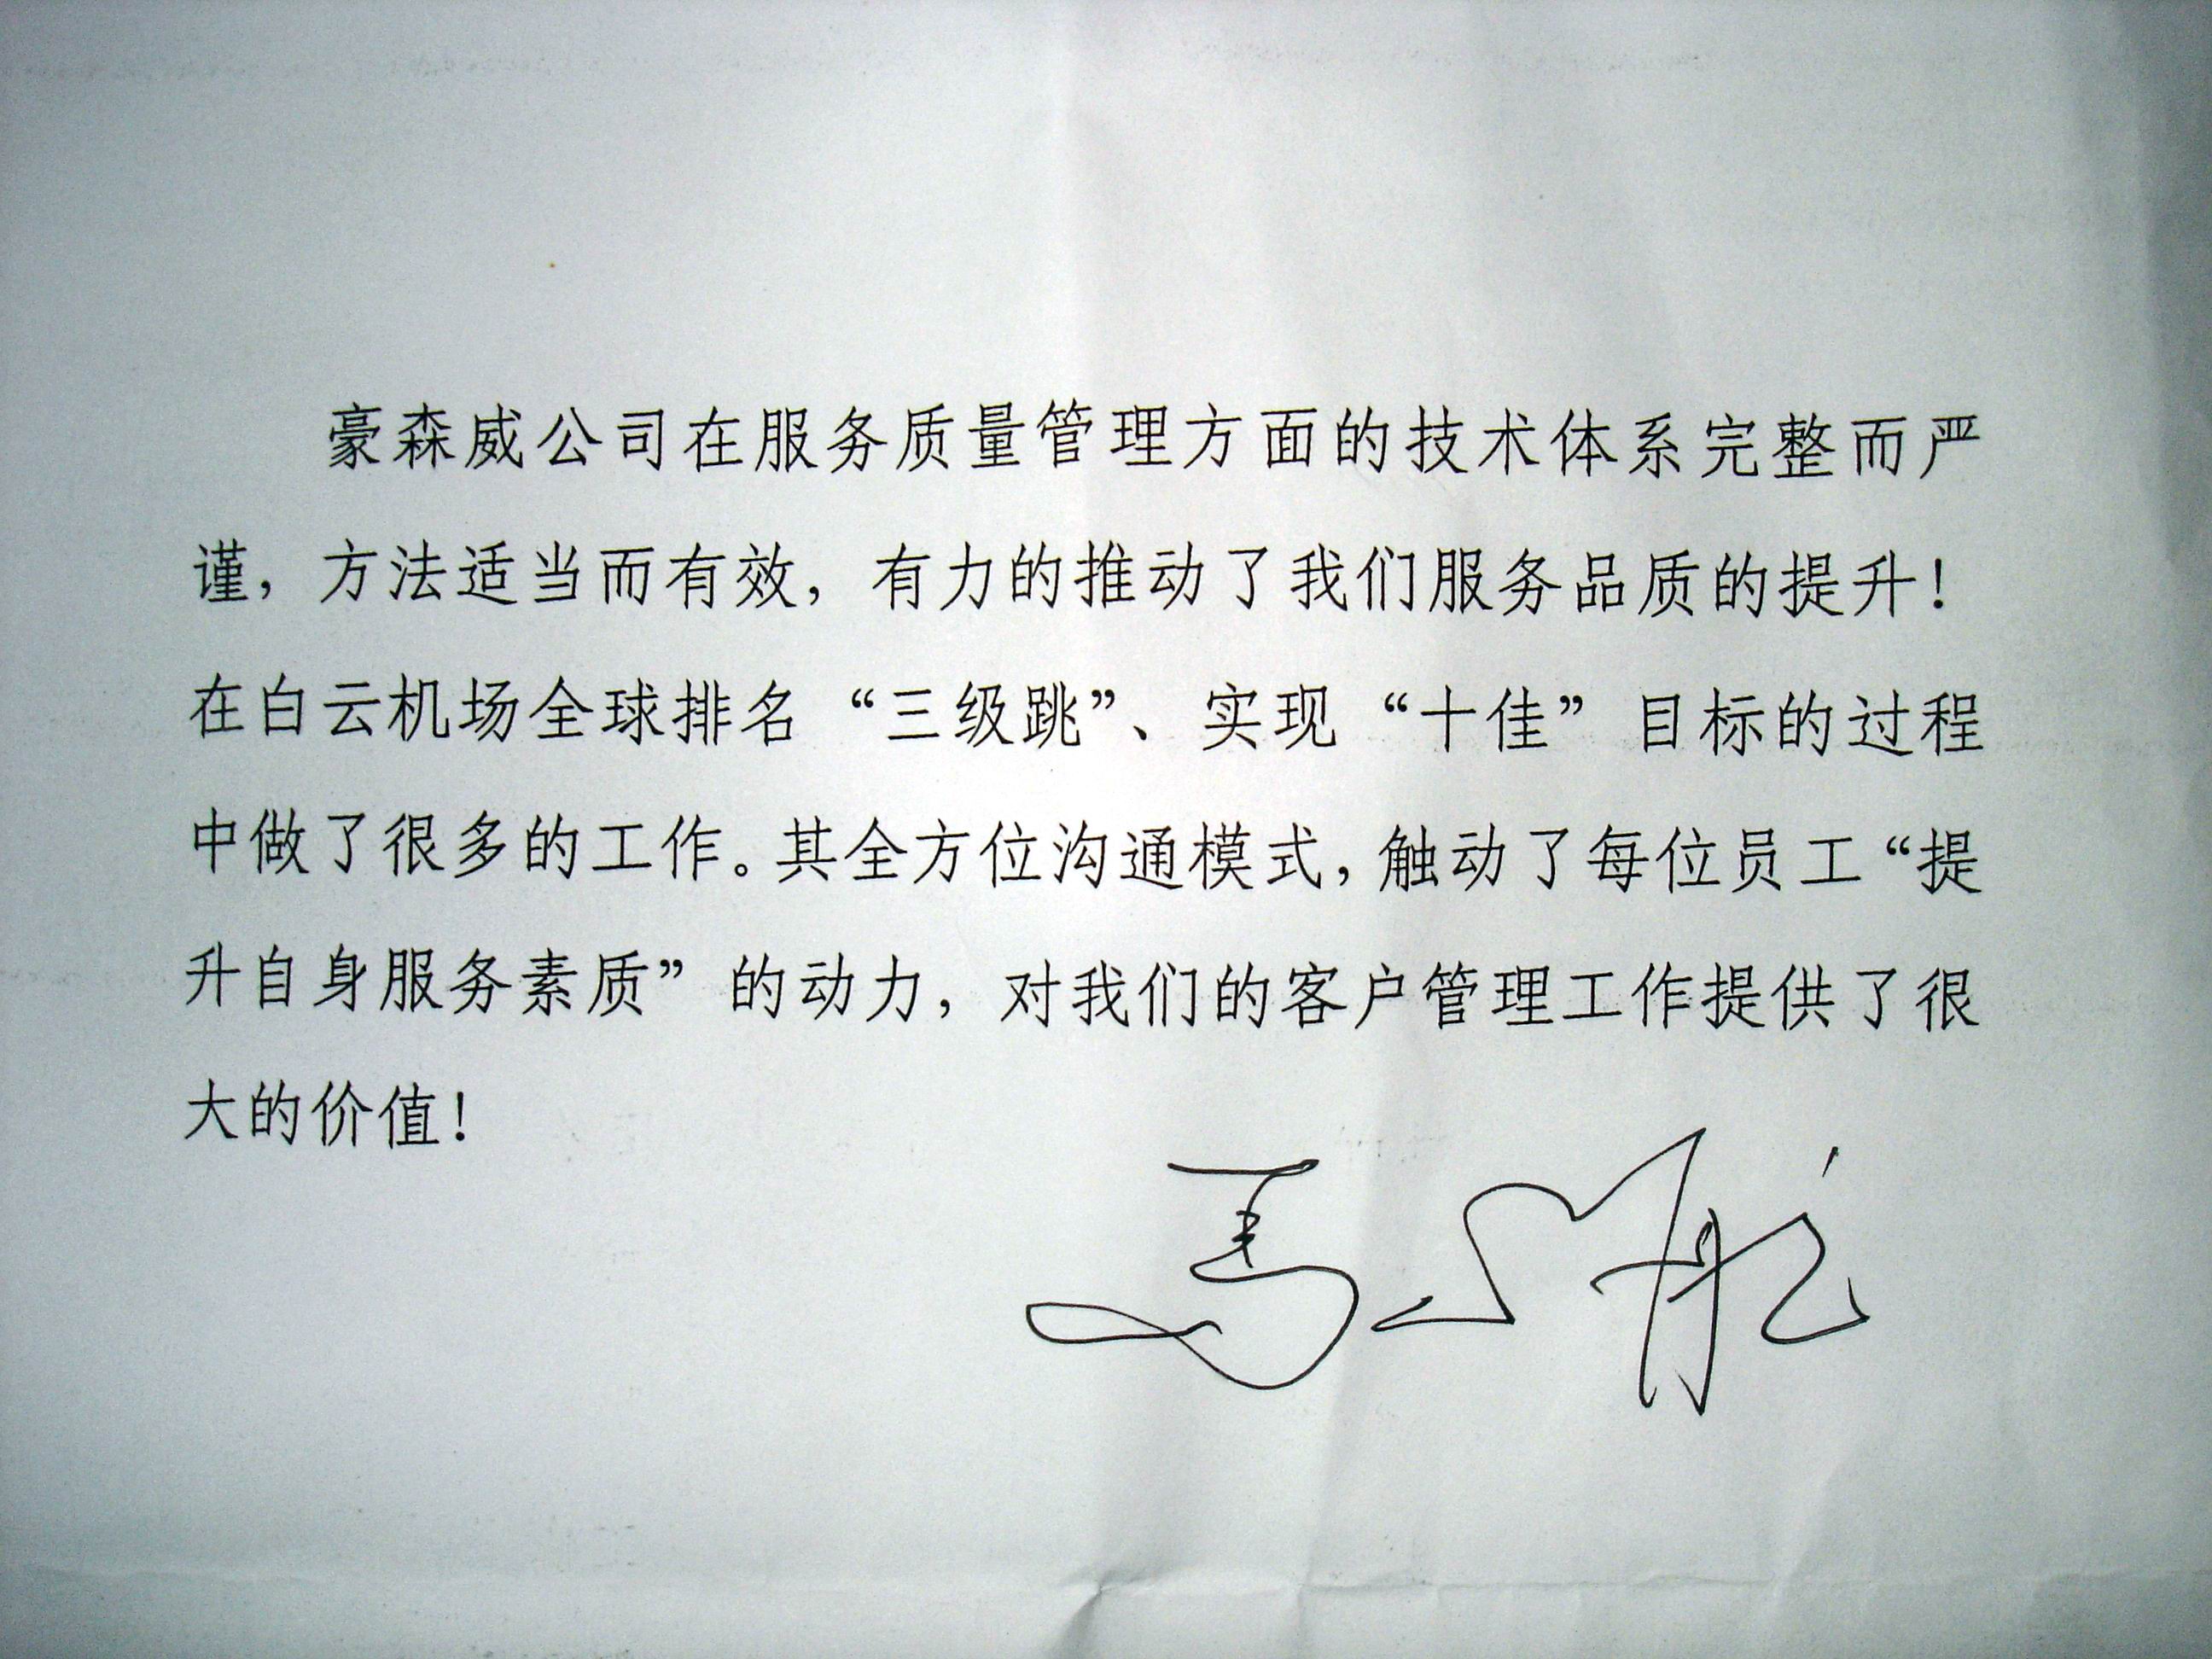 豪森威公司在服务质量管理方面的技术体系完整而严
谨，方法适当而有效，有力的推动了我们服务品质的提升！
在白云机场全球排名“三级跳”、实现“十佳”目标的过程
中做了很多的工作。其全方位沟通模式，触动了每位员工“提
升自身服务素质”的动力，对我们的客户管理工作提供了很
大的价值！